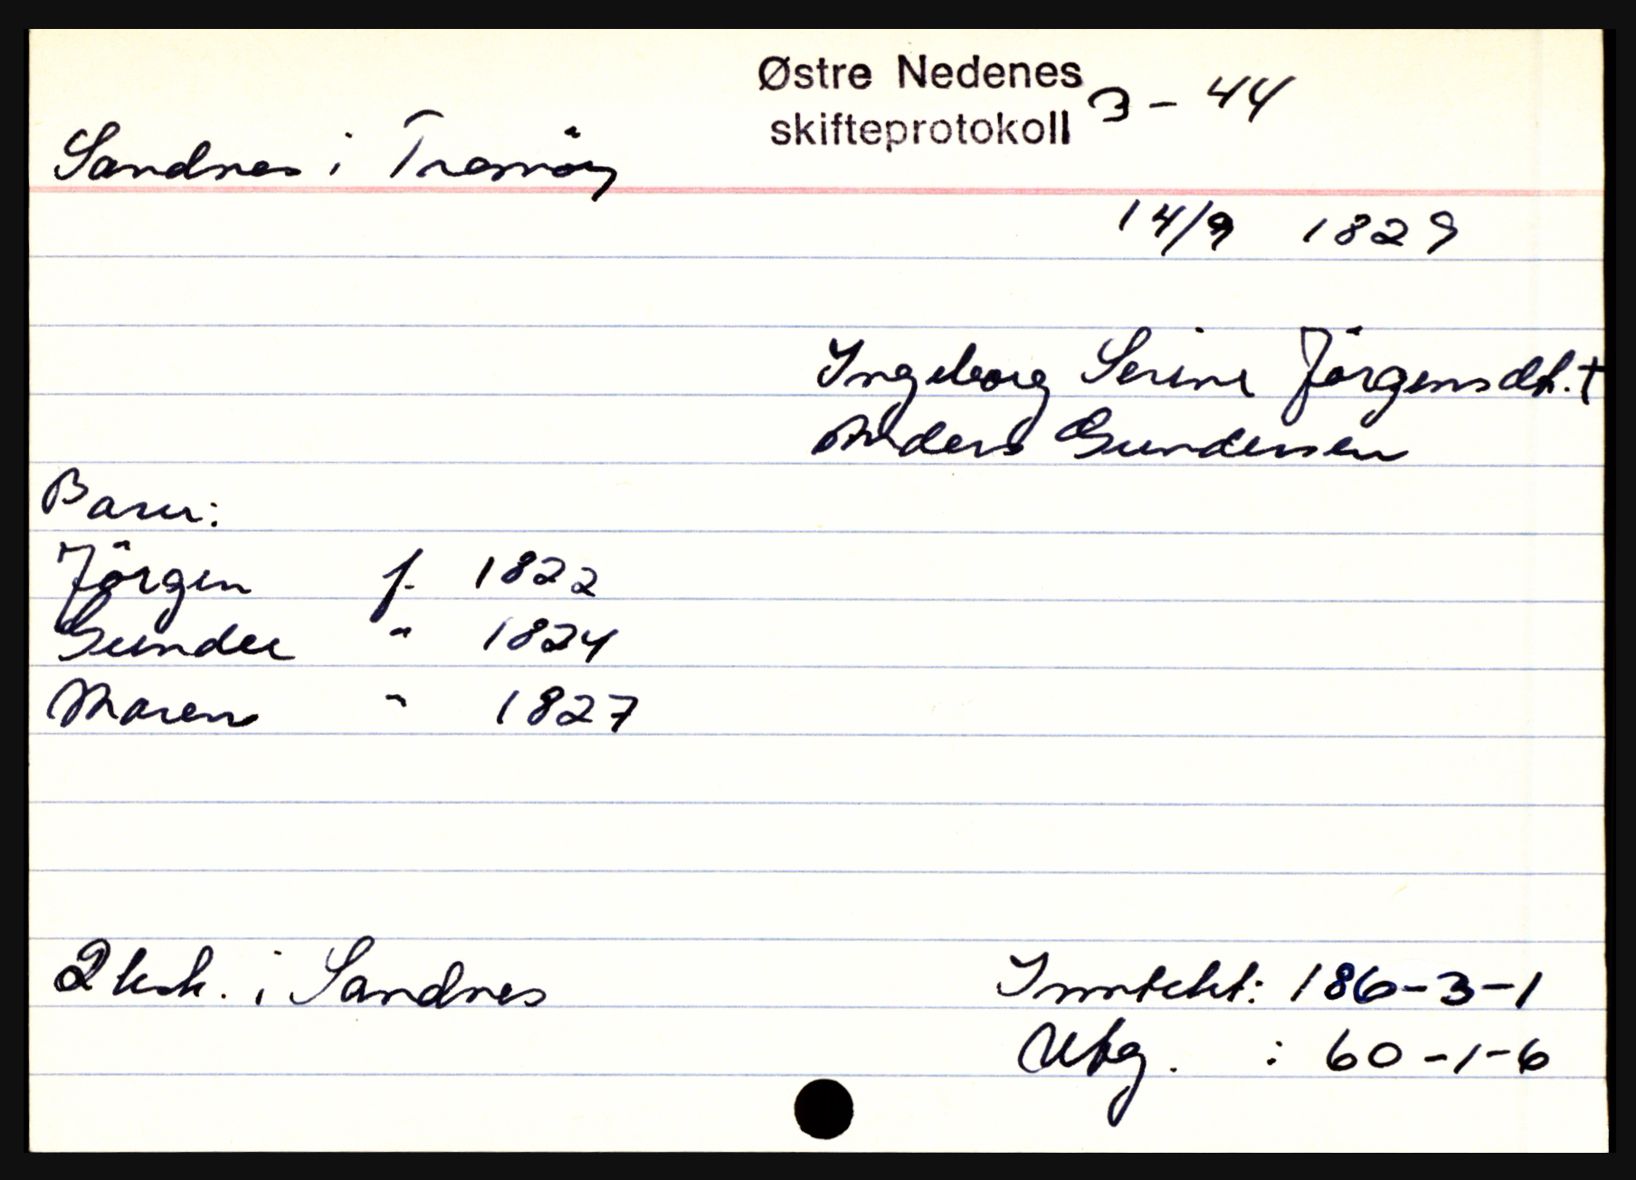 Østre Nedenes
skifteprotokoll 3 - 44
Sandnes i Tromöy
14/9 1829
Ingeborg Serine Jörgensdt. †
Anders Gundersen
Barn:
Jörgen f. 1822
Gunder " 1824
Maren " 1827
i Sandnes
Inntekt: 186-3-1
Utg. : 60-1-6